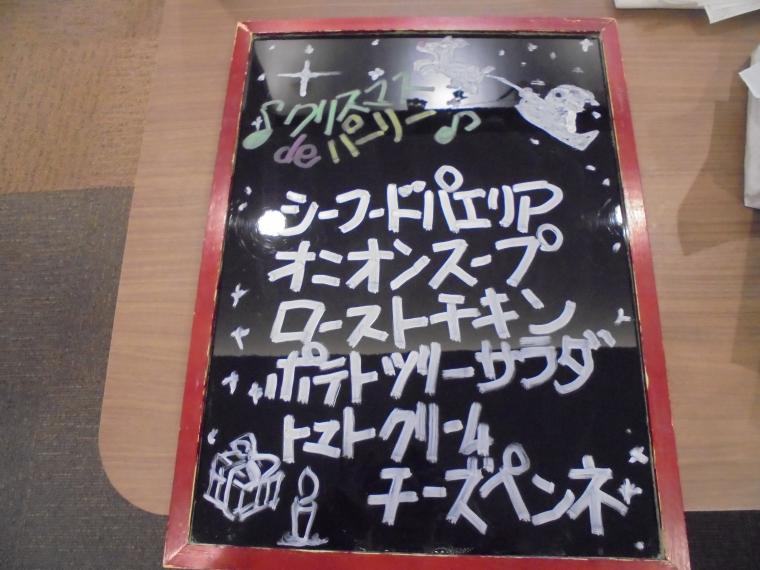 ♪クリスマス
deパーリー♪
シーフードパエリア
オニオンスープ
ローストチキン
ポテトツリーサラダ
トマトクリーム
チーズペンネ